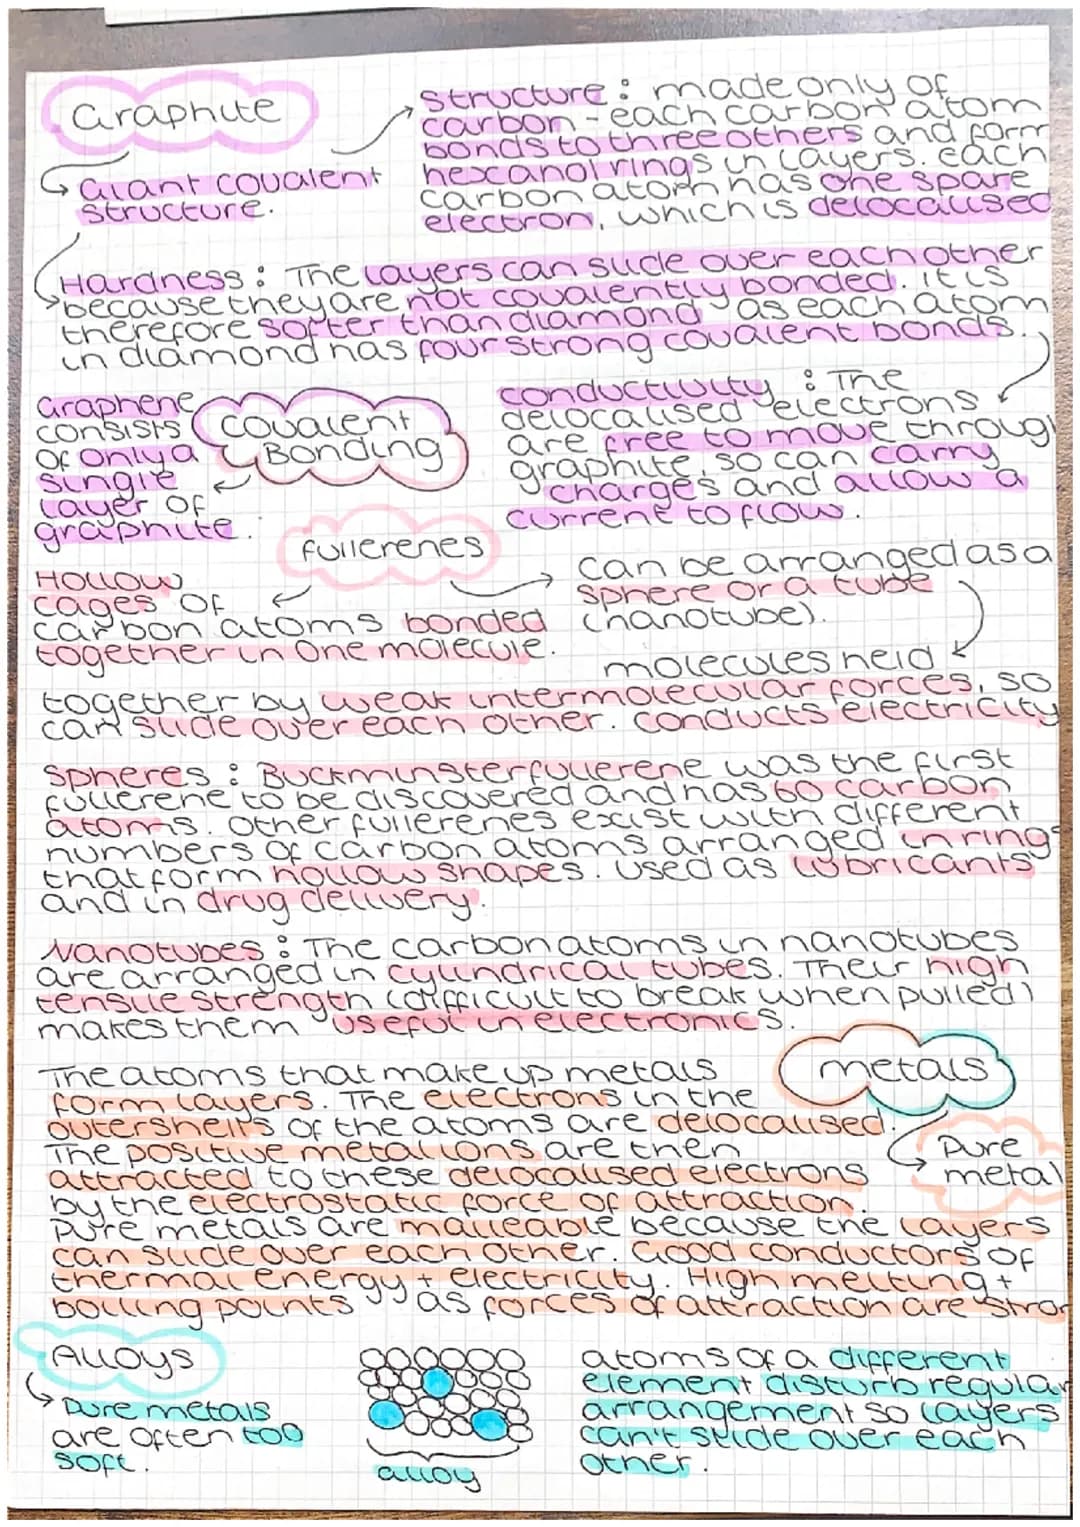 Graphite
Structure: made only of
carbon - each carbon atom
bonds to three others and form
hexanol rings in layers. Each
carbon atom has one spare
electron, which is delocalised
Giant covalent
structure.
Hardness: The layers can slide over each other
because they are not covalently bonded. It is
therefore softer than diamond as each atom
in diamond has four strong covalent bonds.
Graphene
consists
of only a
single
layer of
graphite.
Covalent
Bonding
Conductivity: The
delocalised electrons
are free to move throug
graphite, so can carry
charges and allow a
current to flow.
fullerenes
Hollow
cages of
carbon atoms bonded
together in one molecule.
can be arranged as a
sphere or a tube
(nanotube).
molecules held
together by weak intermolecular forces, so
can slide over each other. Conducts electricity
Spheres: Buckminsterfullerene was the first
fullerene to be discovered and has 60 carbon
atoms. Other fullerenes exist with different
numbers of carbon atoms arranged in rings
that form hollow shapes. Used as lubricants
and in drug delivery.
Nanotubes: The carbon atoms in nanotubes
are arranged in cylindrical tubes. Their high
tensile strength (difficult to break when pulled)
makes them useful in electronics.
metals
Pure
metal
The atoms that make up metals
form layers. The electrons in the
outershells of the atoms are delocalised.
The positive metal ions are then
attracted to these delocalised electrons
by the electrostatic force of attraction.
Pure metals are malleable because the layers
can slide over each other. Good conductors of
thermal energy + electricity. High melting +
boiling points as forces of attraction are stron
Alloys
Pure metals
are often too
soft.
alloy
atoms of a different
element disturb regular
arrangement so layers
can't slide over each
other.